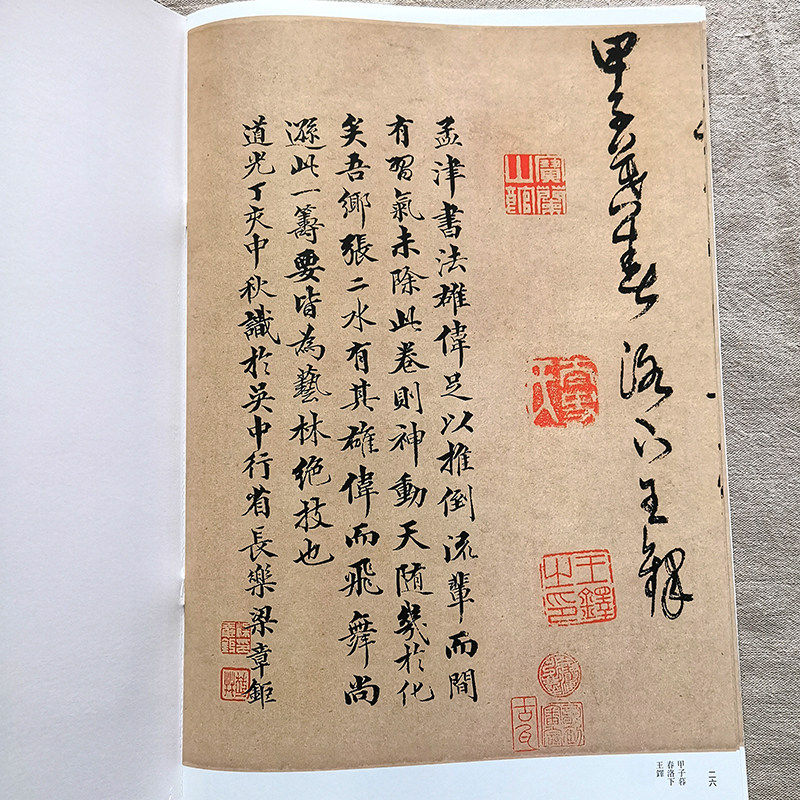 甲子暮春洛下王鐸
寶蘭山館
王鐸之印
孟津書法雄偉足以推倒流輩而間
有習氣未除此卷則神動天隨幾於化
矣吾鄉張二水有其雄偉而飛舞尚
遜此一籌要皆為藝林絕技也
道光丁亥中秋識於吳中行省長樂梁章鉅
甲子暮
春洛下
王鐸
二六